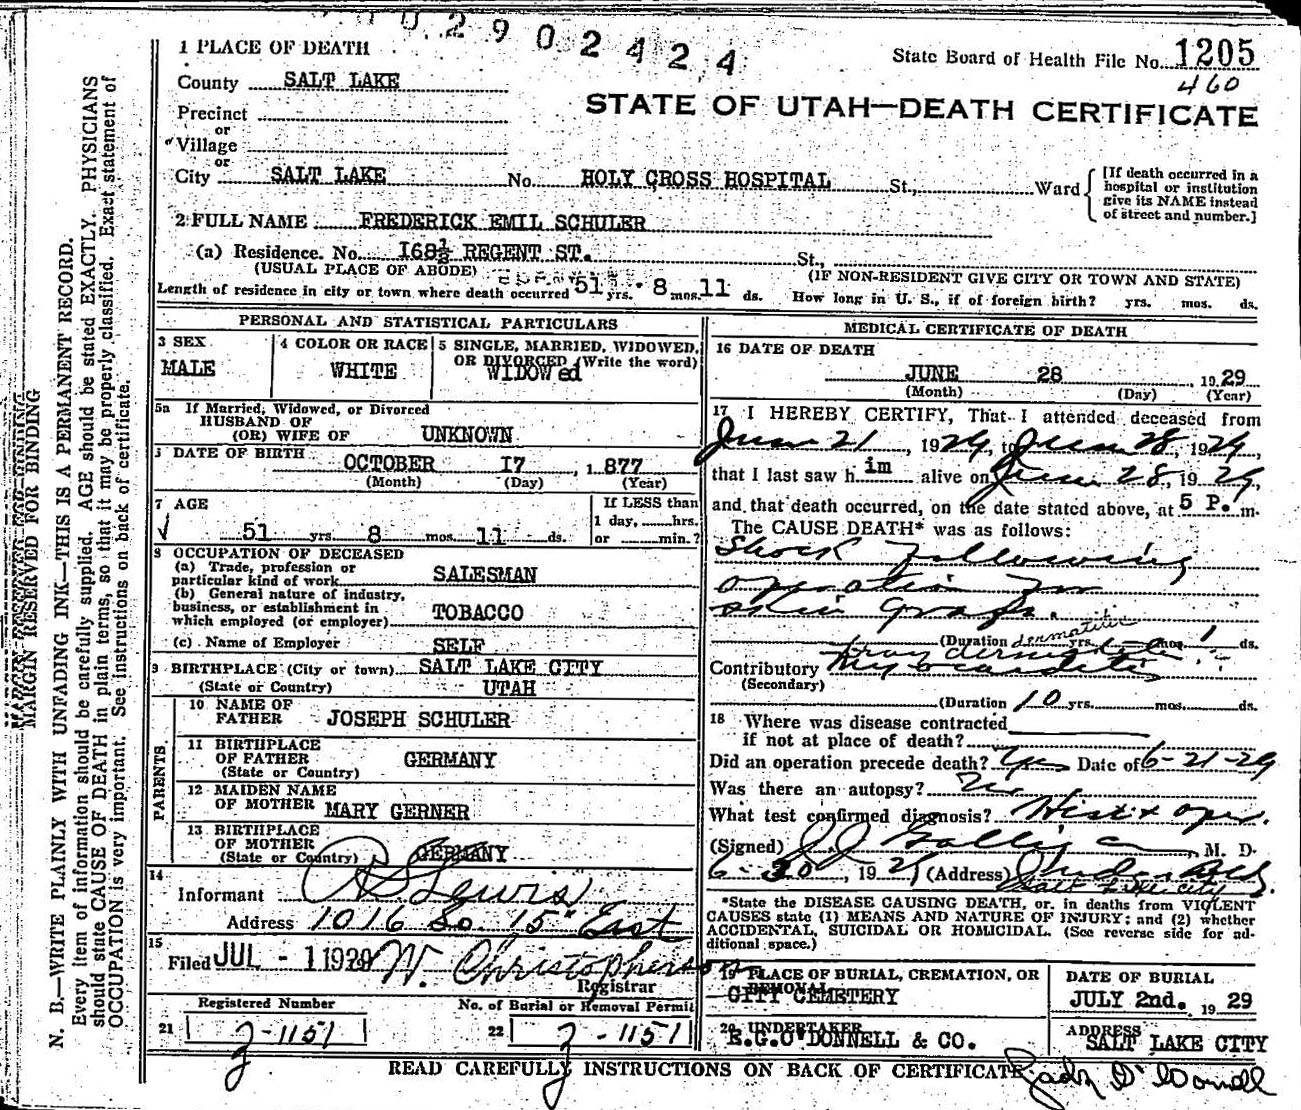 0 0 2 9 0 2 4 2 4
1 PLACE OF DEATH
State Board of Health File No. 1205
460
County SALT LAKE
STATE OF UTAH—DEATH CERTIFICATE
Precinct
or
Village
or
City SALT LAKE No. HOLY CROSS HOSPITAL St., Ward
[If death occurred in a hospital or institution give its NAME instead of street and number.]
2 FULL NAME FREDERICK EMIL SCHULER
(a) Residence. No. 168½ REGENT ST. St.,
(USUAL PLACE OF ABODE) (IF NON-RESIDENT GIVE CITY OR TOWN AND STATE)
Length of residence in city or town where death occurred 51 yrs. 8 mos. 11 ds. How long in U. S., if of foreign birth? yrs. mos. ds.
PERSONAL AND STATISTICAL PARTICULARS
3 SEX
MALE
4 COLOR OR RACE
WHITE
5 SINGLE, MARRIED, WIDOWED, OR DIVORCED (Write the word)
WIDOWed
5a If Married, Widowed, or Divorced
HUSBAND OF
(OR) WIFE OF UNKNOWN
DATE OF BIRTH
OCTOBER 17, 1877
(Month) (Day) (Year)
7 AGE
51 yrs. 8 mos. 11 ds.
If LESS than
1 day, hrs.
or min.?
8 OCCUPATION OF DECEASED
(a) Trade, profession or
particular kind of work SALESMAN
(b) General nature of industry,
business, or establishment in
which employed (or employer) TOBACCO
(c) Name of Employer SELF
9 BIRTHPLACE (City or town) SALT LAKE CITY
(State or Country) UTAH
PARENTS
10 NAME OF
FATHER JOSEPH SCHULER
11 BIRTHPLACE
OF FATHER GERMANY
(State or Country)
12 MAIDEN NAME
OF MOTHER MARY GERNER
13 BIRTHPLACE
OF MOTHER
(State or Country) GERMANY
14
Informant Lewis
Address 1016 So. 15" East
15
Filed JUL - 1 1929 W. Christopherson
Registrar
Registered Number
21 1151
No. of Burial or Removal Permit
22 1151
MEDICAL CERTIFICATE OF DEATH
16 DATE OF DEATH
JUNE 28 1929
(Month) (Day) (Year)
17 I HEREBY CERTIFY, That I attended deceased from
June 21, 1929, to June 28, 1929,
that I last saw him alive on June 28, 1929,
and that death occurred, on the date stated above, at 5 P. m.
The CAUSE DEATH* was as follows:
Shock following
operation for
skin graft.
(Duration yrs. mos. 1 ds.
dermatitis
Contributory Xray dermatitis
(Secondary)
(Duration 10 yrs. mos. ds.
18 Where was disease contracted
if not at place of death?
Did an operation precede death? Yes Date of 6-21-29
Was there an autopsy? No
What test confirmed diagnosis? Hist + oper.
(Signed) M. D.
6-30, 1929 (Address)
Salt Lake City
*State the DISEASE CAUSING DEATH, or in deaths from VIOLENT
CAUSES state (1) MEANS AND NATURE OF INJURY; and (2) whether
ACCIDENTAL, SUICIDAL OR HOMICIDAL. (See reverse side for ad-
ditional space.)
19 PLACE OF BURIAL, CREMATION, OR
REMOVAL
CITY CEMETERY
DATE OF BURIAL
JULY 2nd. 1929
20 UNDERTAKER
E.G.O'DONNELL & CO.
ADDRESS
SALT LAKE CITY
READ CAREFULLY INSTRUCTIONS ON BACK OF CERTIFICATE
O'Donnell
MARGIN RESERVED FOR BINDING
N. B.—WRITE PLAINLY WITH UNFADING INK—THIS IS A PERMANENT RECORD.
Every item of information should be carefully supplied. AGE should be stated EXACTLY. PHYSICIANS
should state CAUSE OF DEATH in plain terms, so that it may be properly classified. Exact statement of
OCCUPATION is very important. See instructions on back of certificate.